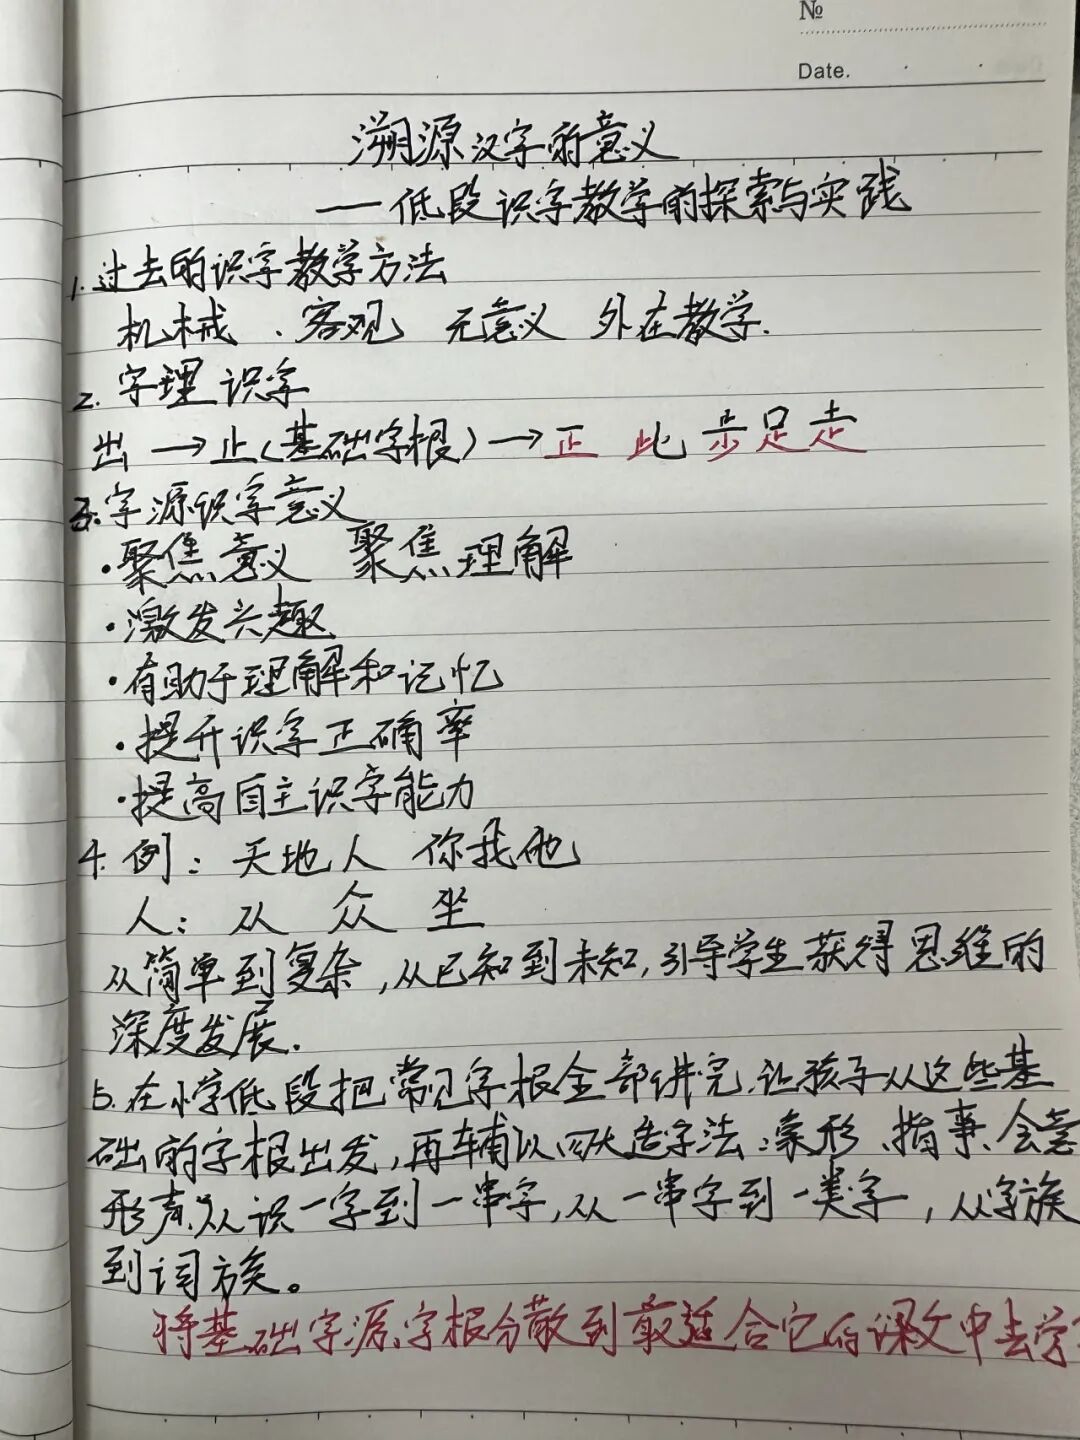 №
Date.
溯源汉字的意义
——低段识字教学的探索与实践
1.过去的识字教学方法
机械、客观 无意义 外在教学.
2.字理识字
出→止(基础字根)→正 此 步 足 走
3.字源识字意义
·聚焦意义 聚焦理解
·激发兴趣
·有助于理解和记忆
·提升识字正确率
·提高自主识字能力
4.例：天地人 你我他
人：从 众 坐
从简单到复杂,从已知到未知,引导学生获得思维的
深度发展.
5.在小学低段把常见字根全部讲完,让孩子从这些基
础的字根出发,再辅以四大造字法:象形、指事、会意
形声,从识一字到一串字,从一串字到一类字,从字族
到词族。
将基础字源、字根分散到最适合它的课文中去学